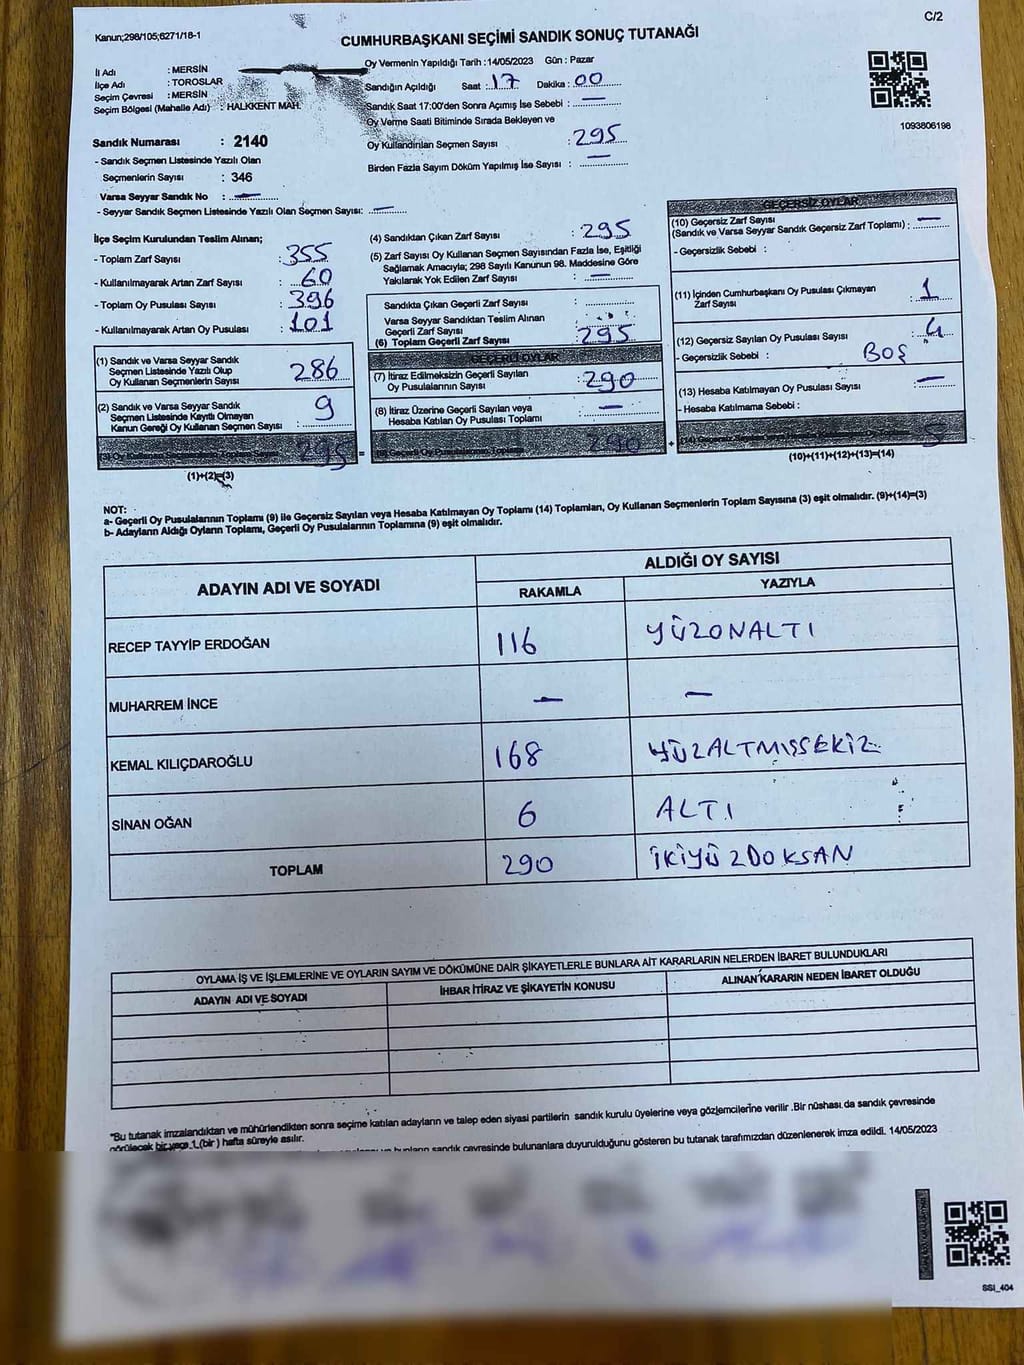 C/2
Kanun;298/105;6271/18-1
CUMHURBAŞKANI SEÇİMİ SANDIK SONUÇ TUTANAĞI
İl Adı : MERSİN
İlçe Adı : TOROSLAR
Seçim Çevresi : MERSİN
Seçim Bölgesi (Mahalle Adı) : HALKKENT MAH.
Sandık Numarası : 2140
- Sandık Seçmen Listesinde Yazılı Olan
Seçmenlerin Sayısı : 346
Varsa Seyyar Sandık No : —
- Seyyar Sandık Seçmen Listesinde Yazılı Olan Seçmen Sayısı: —
Oy Vermenin Yapıldığı Tarih : 14/05/2023 Gün : Pazar
Sandığın Açıldığı Saat : 17 Dakika : 00
Sandık Saat 17:00'den Sonra Açımış İse Sebebi : —
Oy Verme Saati Bitiminde Sırada Bekleyen ve
Oy Kullandırılan Seçmen Sayısı : 295
Birden Fazla Sayım Döküm Yapılmış İse Sayısı : —
1093806196
İlçe Seçim Kurulundan Teslim Alınan;
- Toplam Zarf Sayısı : 355
- Kullanılmayarak Artan Zarf Sayısı : 60
- Toplam Oy Pusulası Sayısı : 396
- Kullanılmayarak Artan Oy Pusulası : 101
(1) Sandık ve Varsa Seyyar Sandık
Seçmen Listesinde Yazılı Olup
Oy Kullanan Seçmenlerin Sayısı : 286
(2) Sandık ve Varsa Seyyar Sandık
Seçmen Listesinde Kayıtlı Olmayan
Kanun Gereği Oy Kullanan Seçmen Sayısı : 9
(3) Oy Kullanan Seçmenlerin Toplam Sayısı 295 =
(1)+(2)=(3)
(4) Sandıktan Çıkan Zarf Sayısı : 295
(5) Zarf Sayısı Oy Kullanan Seçmen Sayısından Fazla İse, Eşitliği
Sağlamak Amacıyla; 298 Sayılı Kanunun 98. Maddesine Göre
Yakılarak Yok Edilen Zarf Sayısı : —
Sandıkta Çıkan Geçerli Zarf Sayısı :
Varsa Seyyar Sandıktan Teslim Alınan
Geçerli Zarf Sayısı :
(6) Toplam Geçerli Zarf Sayısı : 295
GEÇERLİ OYLAR
(7) İtiraz Edilmeksizin Geçerli Sayılan
Oy Pusulalarının Sayısı : 290
(8) İtiraz Üzerine Geçerli Sayılan veya
Hesaba Katılan Oy Pusulası Toplamı : —
(9) Geçerli Oy Pusulalarının Toplamı 290 +
GEÇERSİZ OYLAR
(10) Geçersiz Zarf Sayısı
(Sandık ve Varsa Seyyar Sandık Geçersiz Zarf Toplamı) : —
- Geçersizlik Sebebi :
(11) İçinden Cumhurbaşkanı Oy Pusulası Çıkmayan
Zarf Sayısı : 1
(12) Geçersiz Sayılan Oy Pusulası Sayısı : 4
- Geçersizlik Sebebi : BOŞ
(13) Hesaba Katılmayan Oy Pusulası Sayısı : —
- Hesaba Katılmama Sebebi :
5
(10)+(11)+(12)+(13)=(14)
NOT:
a- Geçerli Oy Pusulalarının Toplamı (9) ile Geçersiz Sayılan veya Hesaba Katılmayan Oy Toplamı (14) Toplamları, Oy Kullanan Seçmenlerin Toplam Sayısına (3) eşit olmalıdır. (9)+(14)=(3)
b- Adayların Aldığı Oyların Toplamı, Geçerli Oy Pusulalarının Toplamına (9) eşit olmalıdır.
ADAYIN ADI VE SOYADI
ALDIĞI OY SAYISI
RAKAMLA YAZIYLA
RECEP TAYYİP ERDOĞAN 116 YÜZONALTI
MUHARREM İNCE — —
KEMAL KILIÇDAROĞLU 168 YÜZALTMIŞSEKİZ
SİNAN OĞAN 6 ALTI
TOPLAM 290 İKİYÜZDOKSAN
OYLAMA İŞ VE İŞLEMLERİNE VE OYLARIN SAYIM VE DÖKÜMÜNE DAİR ŞİKAYETLERLE BUNLARA AİT KARARLARIN NELERDEN İBARET BULUNDUKLARI
ADAYIN ADI VE SOYADI İHBAR İTİRAZ VE ŞİKAYETİN KONUSU ALINAN KARARIN NEDEN İBARET OLDUĞU
*Bu tutanak imzalandıktan ve mühürlendikten sonra seçime katılan adayların ve talep eden siyasi partilerin sandık kurulu üyelerine veya gözlemcilerine verilir .Bir nüshası da sandık çevresinde
görülecek bir yere 1 (bir) hafta süreyle asılır.
sandık çevresinde bulunanlara duyurulduğunu gösteren bu tutanak tarafımızdan düzenlenerek imza edildi. 14/05/2023
SSI_404